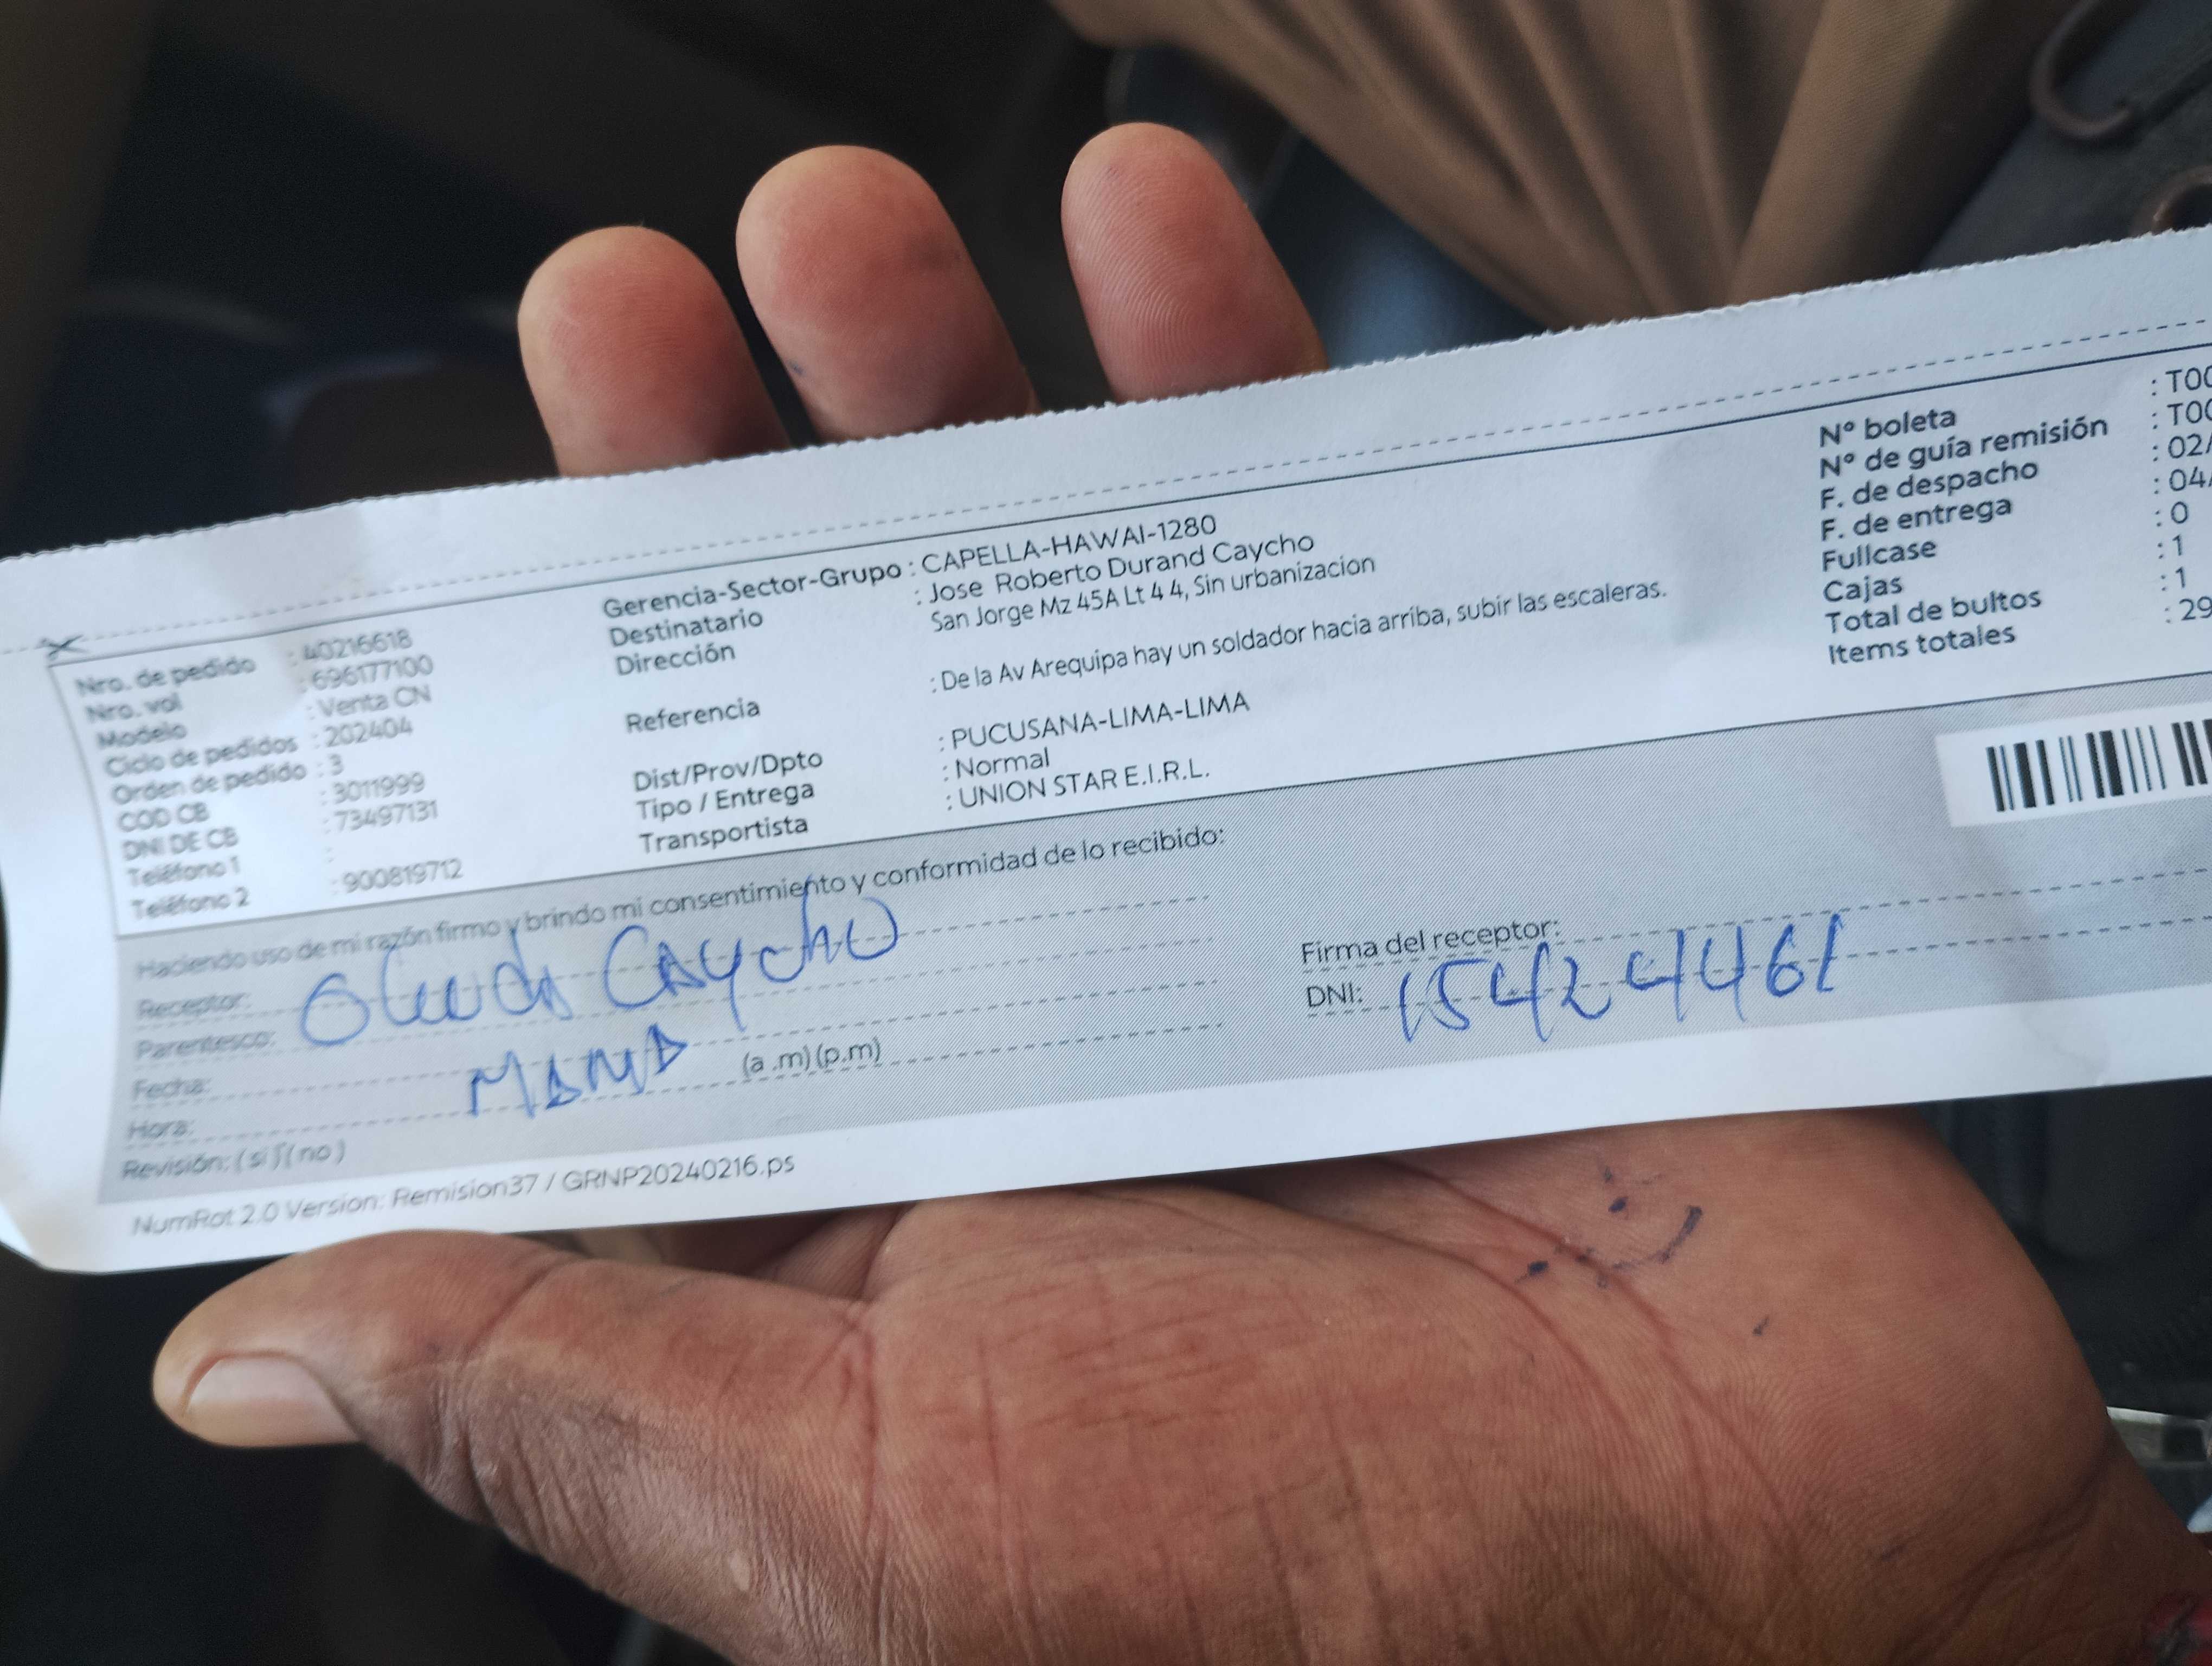 Nro. de pedido : 40216618
Nro. vol : 696177100
Modelo : Venta CN
Ciclo de pedidos : 202404
Orden de pedido : 3
COD CB : 3011999
DNI DE CB : 73497131
Teléfono 1 :
Teléfono 2 : 900819712
Gerencia-Sector-Grupo : CAPELLA-HAWAI-1280
Destinatario : Jose Roberto Durand Caycho
Dirección San Jorge Mz 45A Lt 4 4, Sin urbanizacion
Referencia : De la Av Arequipa hay un soldador hacia arriba, subir las escaleras.
Dist/Prov/Dpto : PUCUSANA-LIMA-LIMA
Tipo / Entrega : Normal
Transportista : UNION STAR E.I.R.L.
N° boleta : T00
N° de guía remisión : T00
F. de despacho : 02/
F. de entrega : 04/
Fullcase : 0
Cajas : 1
Total de bultos : 1
Items totales : 29
Haciendo uso de mi razón firmo y brindo mi consentimiento y conformidad de lo recibido:
Receptor: Caycho
Parentesco:
Fecha: MAMA
Hora: (a .m) (p.m)
Revisión: ( si ) ( no )
Firma del receptor:
DNI: 15424461
NumRot 2.0 Version: Remision37 / GRNP20240216.ps